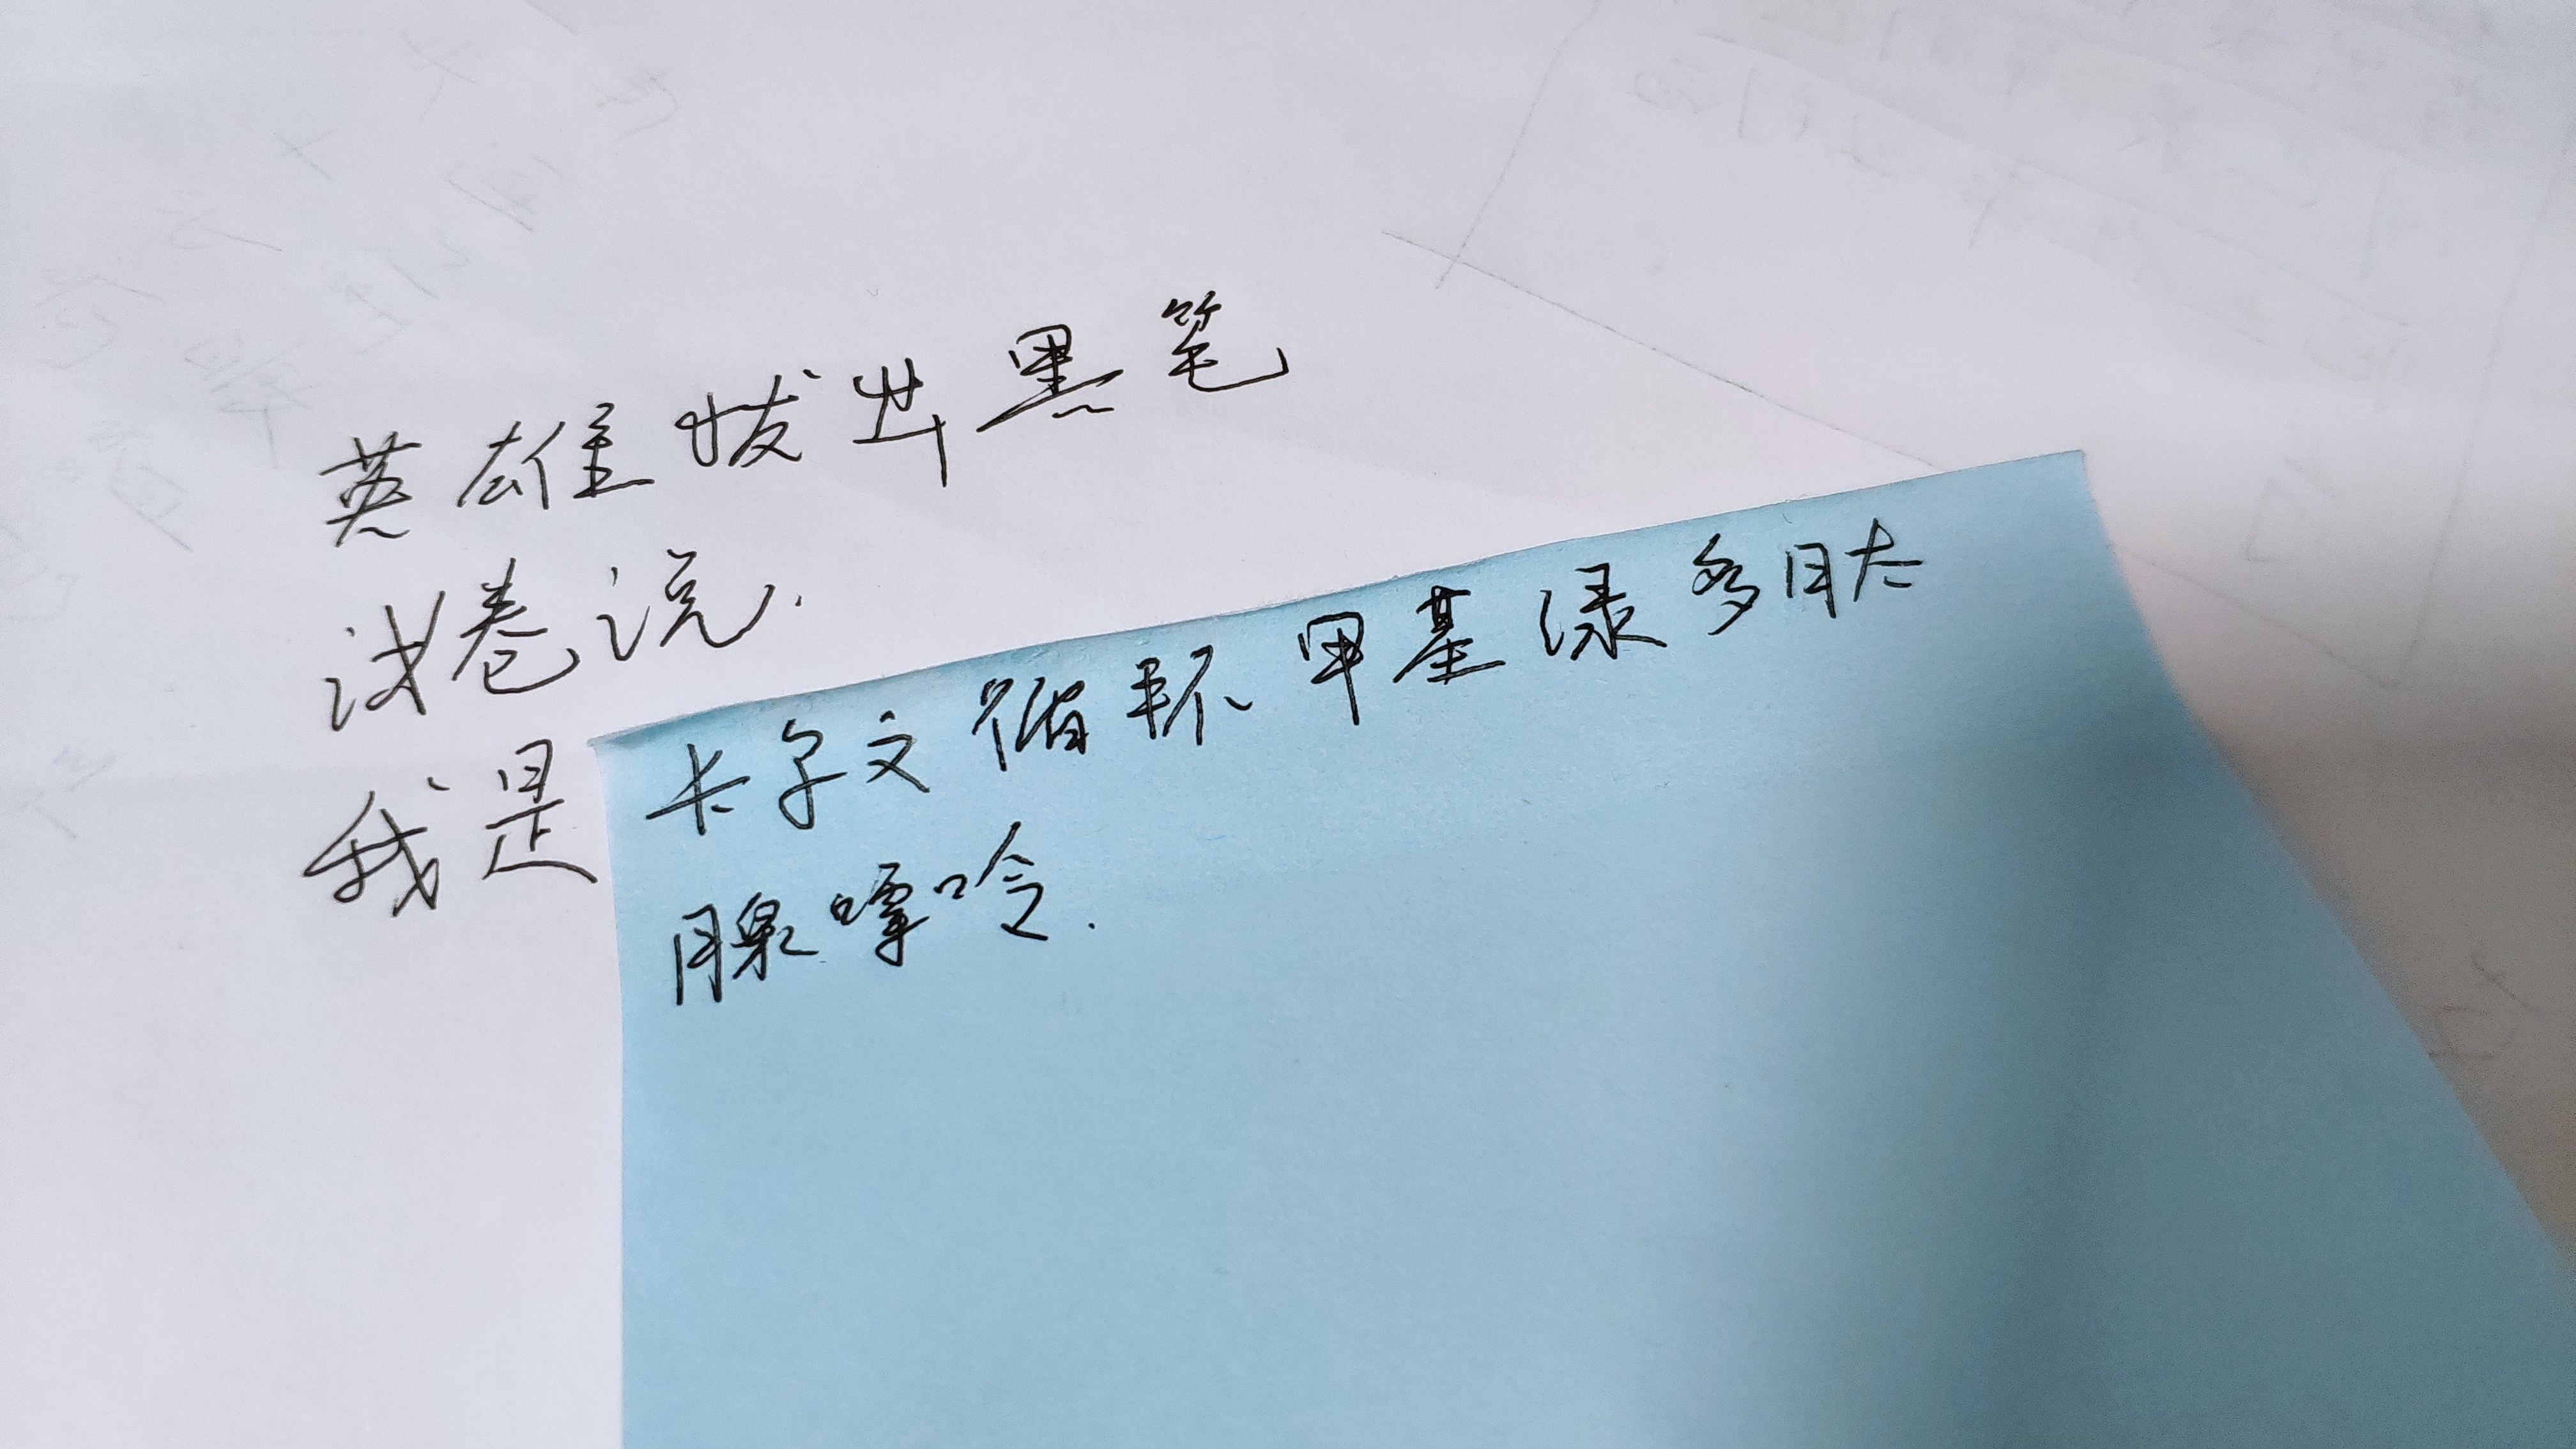 英雄拔出黑笔
试卷说.
我是卡尔文循环甲基绿多肽
腺嘌呤.